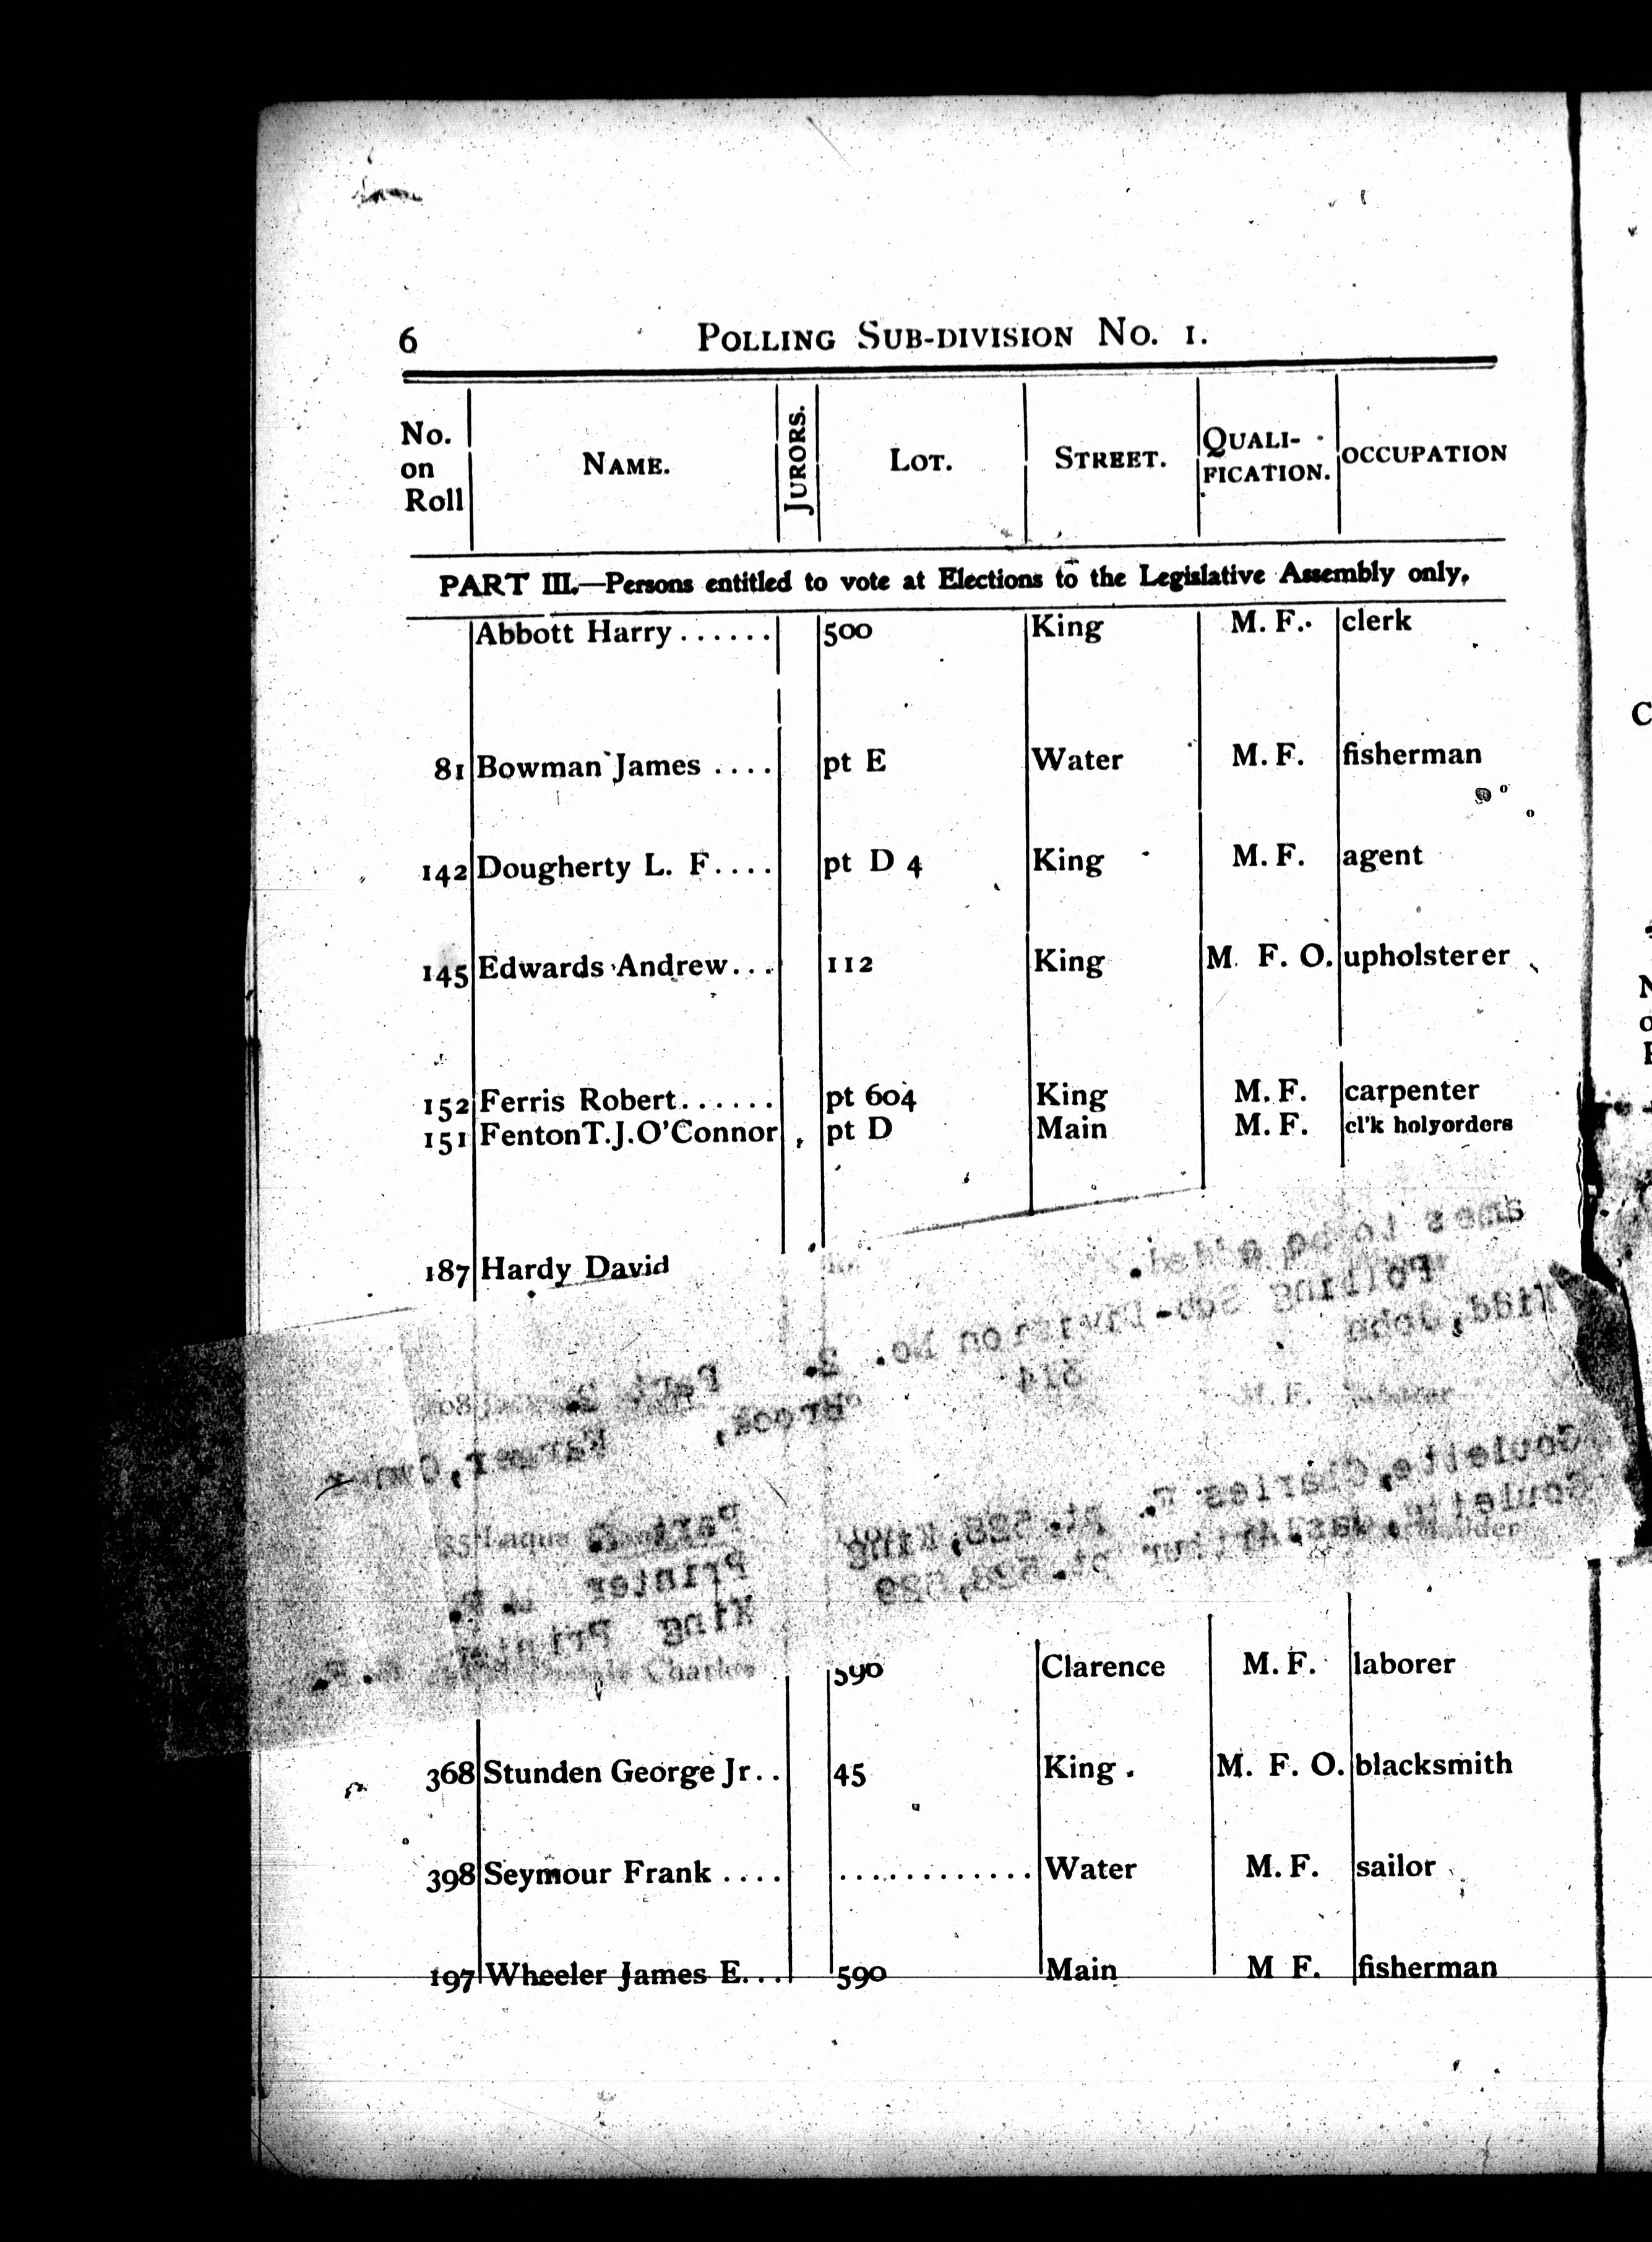 6 POLLING SUB-DIVISION NO. 1.
No. on Roll NAME. JURORS. LOT. STREET. QUALI-FICATION. OCCUPATION
PART III.—Persons entitled to vote at Elections to the Legislative Assembly only.
Abbott Harry...... 500 King M. F. clerk
81 Bowman James .... pt E Water M. F. fisherman
142 Dougherty L. F.... pt D 4 King M. F. agent
145 Edwards Andrew... 112 King M. F. O. upholsterer
152 Ferris Robert...... pt 604 King M. F. carpenter
151 Fenton T. J. O'Connor pt D Main M. F. cl'k holyorders
187 Hardy David
ames to be added.
Polling Sub-Division No. 2. Part
Kidd, John 514 Brock, Farmer, Owner
Goulette, Charles F. pt. 528, King Part
Printer
pt. 528, 529 King Printer
Charles 590 Clarence M. F. laborer
368 Stunden George Jr.. 45 King. M. F. O. blacksmith
398 Seymour Frank .... ............ Water M. F. sailor
197 Wheeler James E... 590 Main M F. fisherman